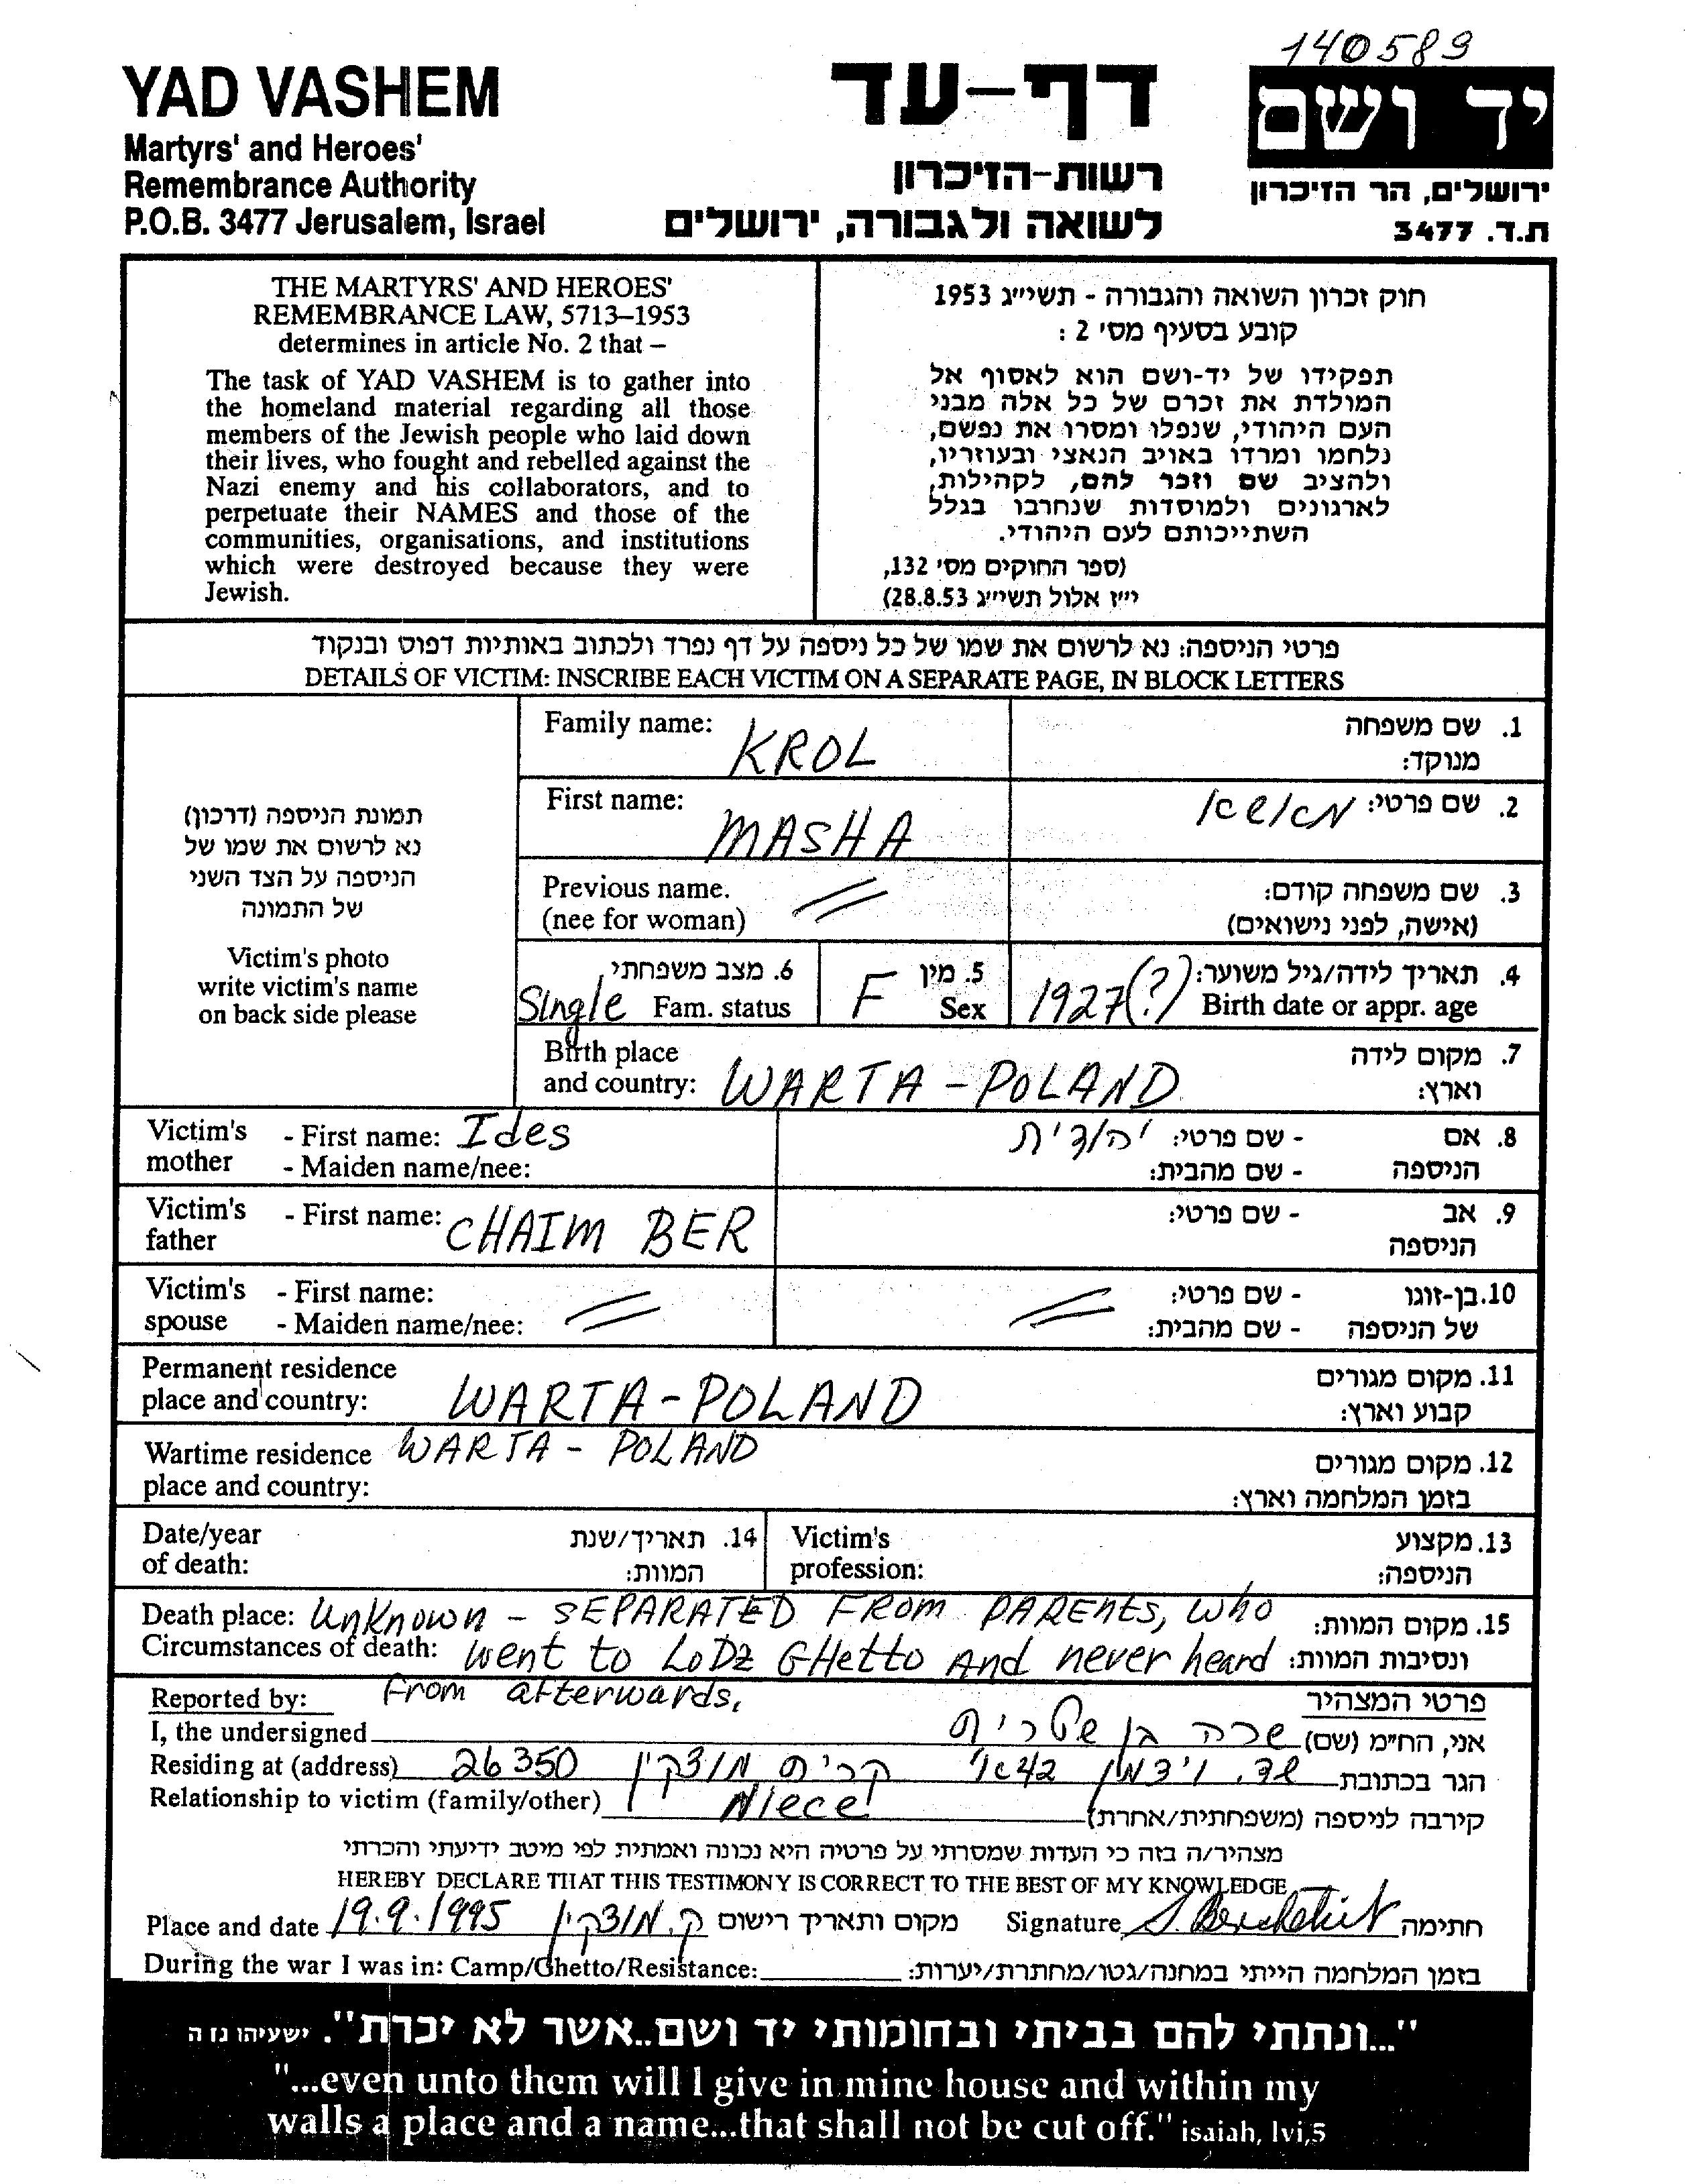 140589
YAD VASHEM
Martyrs' and Heroes'
Remembrance Authority
P.O.B. 3477 Jerusalem, Israel
דף-עד
רשות-הזיכרון
לשואה ולגבורה, ירושלים
יד ושם
ירושלים, הר הזיכרון
ת.ד. 3477
THE MARTYRS' AND HEROES'
REMEMBRANCE LAW, 5713–1953
determines in article No. 2 that –
The task of YAD VASHEM is to gather into
the homeland material regarding all those
members of the Jewish people who laid down
their lives, who fought and rebelled against the
Nazi enemy and his collaborators, and to
perpetuate their NAMES and those of the
communities, organisations, and institutions
which were destroyed because they were
Jewish.
חוק זכרון השואה והגבורה - תשי״ג 1953
קובע בסעיף מס' 2 :
תפקידו של יד-ושם הוא לאסוף אל
המולדת את זכרם של כל אלה מבני
העם היהודי, שנפלו ומסרו את נפשם,
נלחמו ומרדו באויב הנאצי ובעוזריו,
ולהציב שם וזכר להם, לקהילות,
לארגונים ולמוסדות שנחרבו בגלל
השתייכותם לעם היהודי.
(ספר החוקים מס' 132,
י״ז אלול תשי״ג 28.8.53)
פרטי הניספה: נא לרשום את שמו של כל ניספה על דף נפרד ולכתוב באותיות דפוס ובנקוד
DETAILS OF VICTIM: INSCRIBE EACH VICTIM ON A SEPARATE PAGE, IN BLOCK LETTERS
תמונת הניספה (דרכון)
נא לרשום את שמו של
הניספה על הצד השני
של התמונה
Victim's photo
write victim's name
on back side please
Family name: KROL
1. שם משפחה
מנוקד:
First name: MASHA
2. שם פרטי: מאשא
Previous name.
(nee for woman)
3. שם משפחה קודם:
(אישה, לפני נישואים)
6. מצב משפחתי
Single Fam. status
5. מין
F Sex
4. תאריך לידה/גיל משוער:
1927(?) Birth date or appr. age
Birth place
and country: WARTA - POLAND
7. מקום לידה
וארץ:
Victim's - First name: Ides
mother - Maiden name/nee:
8. אם - שם פרטי: יהודית
הניספה - שם מהבית:
Victim's - First name: CHAIM BER
father
9. אב - שם פרטי:
הניספה
Victim's - First name:
spouse - Maiden name/nee:
10. בן-זוגו - שם פרטי:
של הניספה - שם מהבית:
Permanent residence
place and country: WARTA - POLAND
11. מקום מגורים
קבוע וארץ:
Wartime residence WARTA - POLAND
place and country:
12. מקום מגורים
בזמן המלחמה וארץ:
Date/year
of death:
14. תאריך/שנת
המוות:
Victim's
profession:
13. מקצוע
הניספה:
Death place: Unknown - SEPARATED FROM PARENTS, who
15. מקום המוות:
Circumstances of death: went to LoDz GHetto And never heard
ונסיבות המוות:
From afterwards,
Reported by:
פרטי המצהיר
I, the undersigned
אני, הח״מ (שם) שרה בן שטרית
Residing at (address)
הגר בכתובת שד. ויצמן 42א' קרית מוצקין 26350
Relationship to victim (family/other) Niece
קירבה לניספה (משפחתית/אחרת)
מצהיר/ה בזה כי העדות שמסרתי על פרטיה היא נכונה ואמתית לפי מיטב ידיעתי והכרתי
HEREBY DECLARE THAT THIS TESTIMONY IS CORRECT TO THE BEST OF MY KNOWLEDGE
Place and date 19.9.1995 ק.מוצקין מקום ותאריך רישום
Signature חתימה
During the war I was in: Camp/Ghetto/Resistance:
בזמן המלחמה הייתי במחנה/גטו/מחתרת/יערות:
"...ונתתי להם בביתי ובחומותי יד ושם..אשר לא יכרת". ישעיהו נז ה
"...even unto them will I give in mine house and within my
walls a place and a name...that shall not be cut off." isaiah, lvi,5